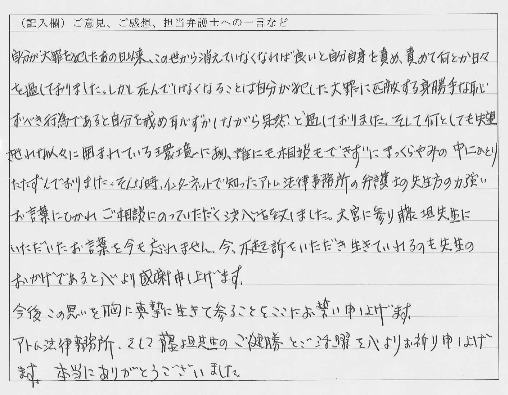 (記入欄) ご意見、ご感想、担当弁護士への一言など
自分が大罪を犯したあの日以来、この世から消えていなくなれば良いと自分自身を責め、責めて何とか日々
を過しておりました。しかし死んでいなくなることは自分が犯した大罪に匹敵する身勝手な恥
ずべき行為であると自分を戒め恥ずかしながら 过しておりました。そして何としても失望
され 人々に囲まれている環境へあり、誰にも相談もできずにまっくらやみの中にひとり
たたずんでおりました。そんな時、インターネットで知ったアトム法律事務所の弁護士の先生方の力強い
お言葉にひかれ ご相談にのっていただく決心を致しました。大宮に参り藤垣先生に
いただいたお言葉を今も忘れません。今、不起訴をいただき生きていれるのも先生の
おかげであると心より感謝申し上げます。
今後この思いを胸に真摯に生きて参ることをここにお誓い申し上げます。
アトム法律事務所、そして藤垣先生のご健勝とご活躍を心よりお祈り申し上げ
ます。本当にありがとうございました。